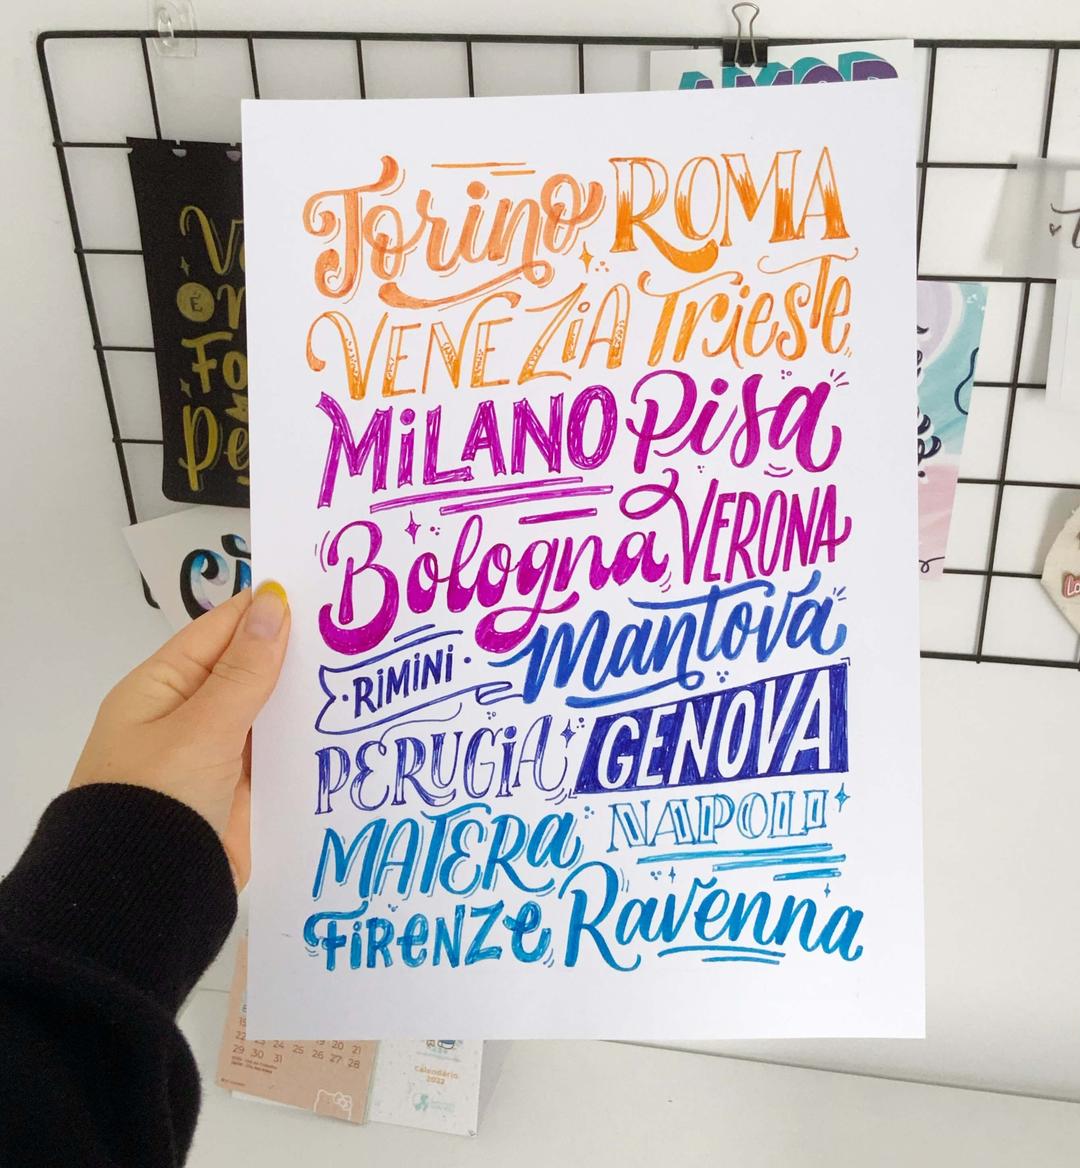 AMOR
Torino ROMA
VENEZiA Trieste
MiLANO Pisa
Bologna VERONA
·RiMiNi· Mantova
PERUGiA GENOVA
MATERa NAPOLI
FiReNZe Ravenna
É
calendário
2022